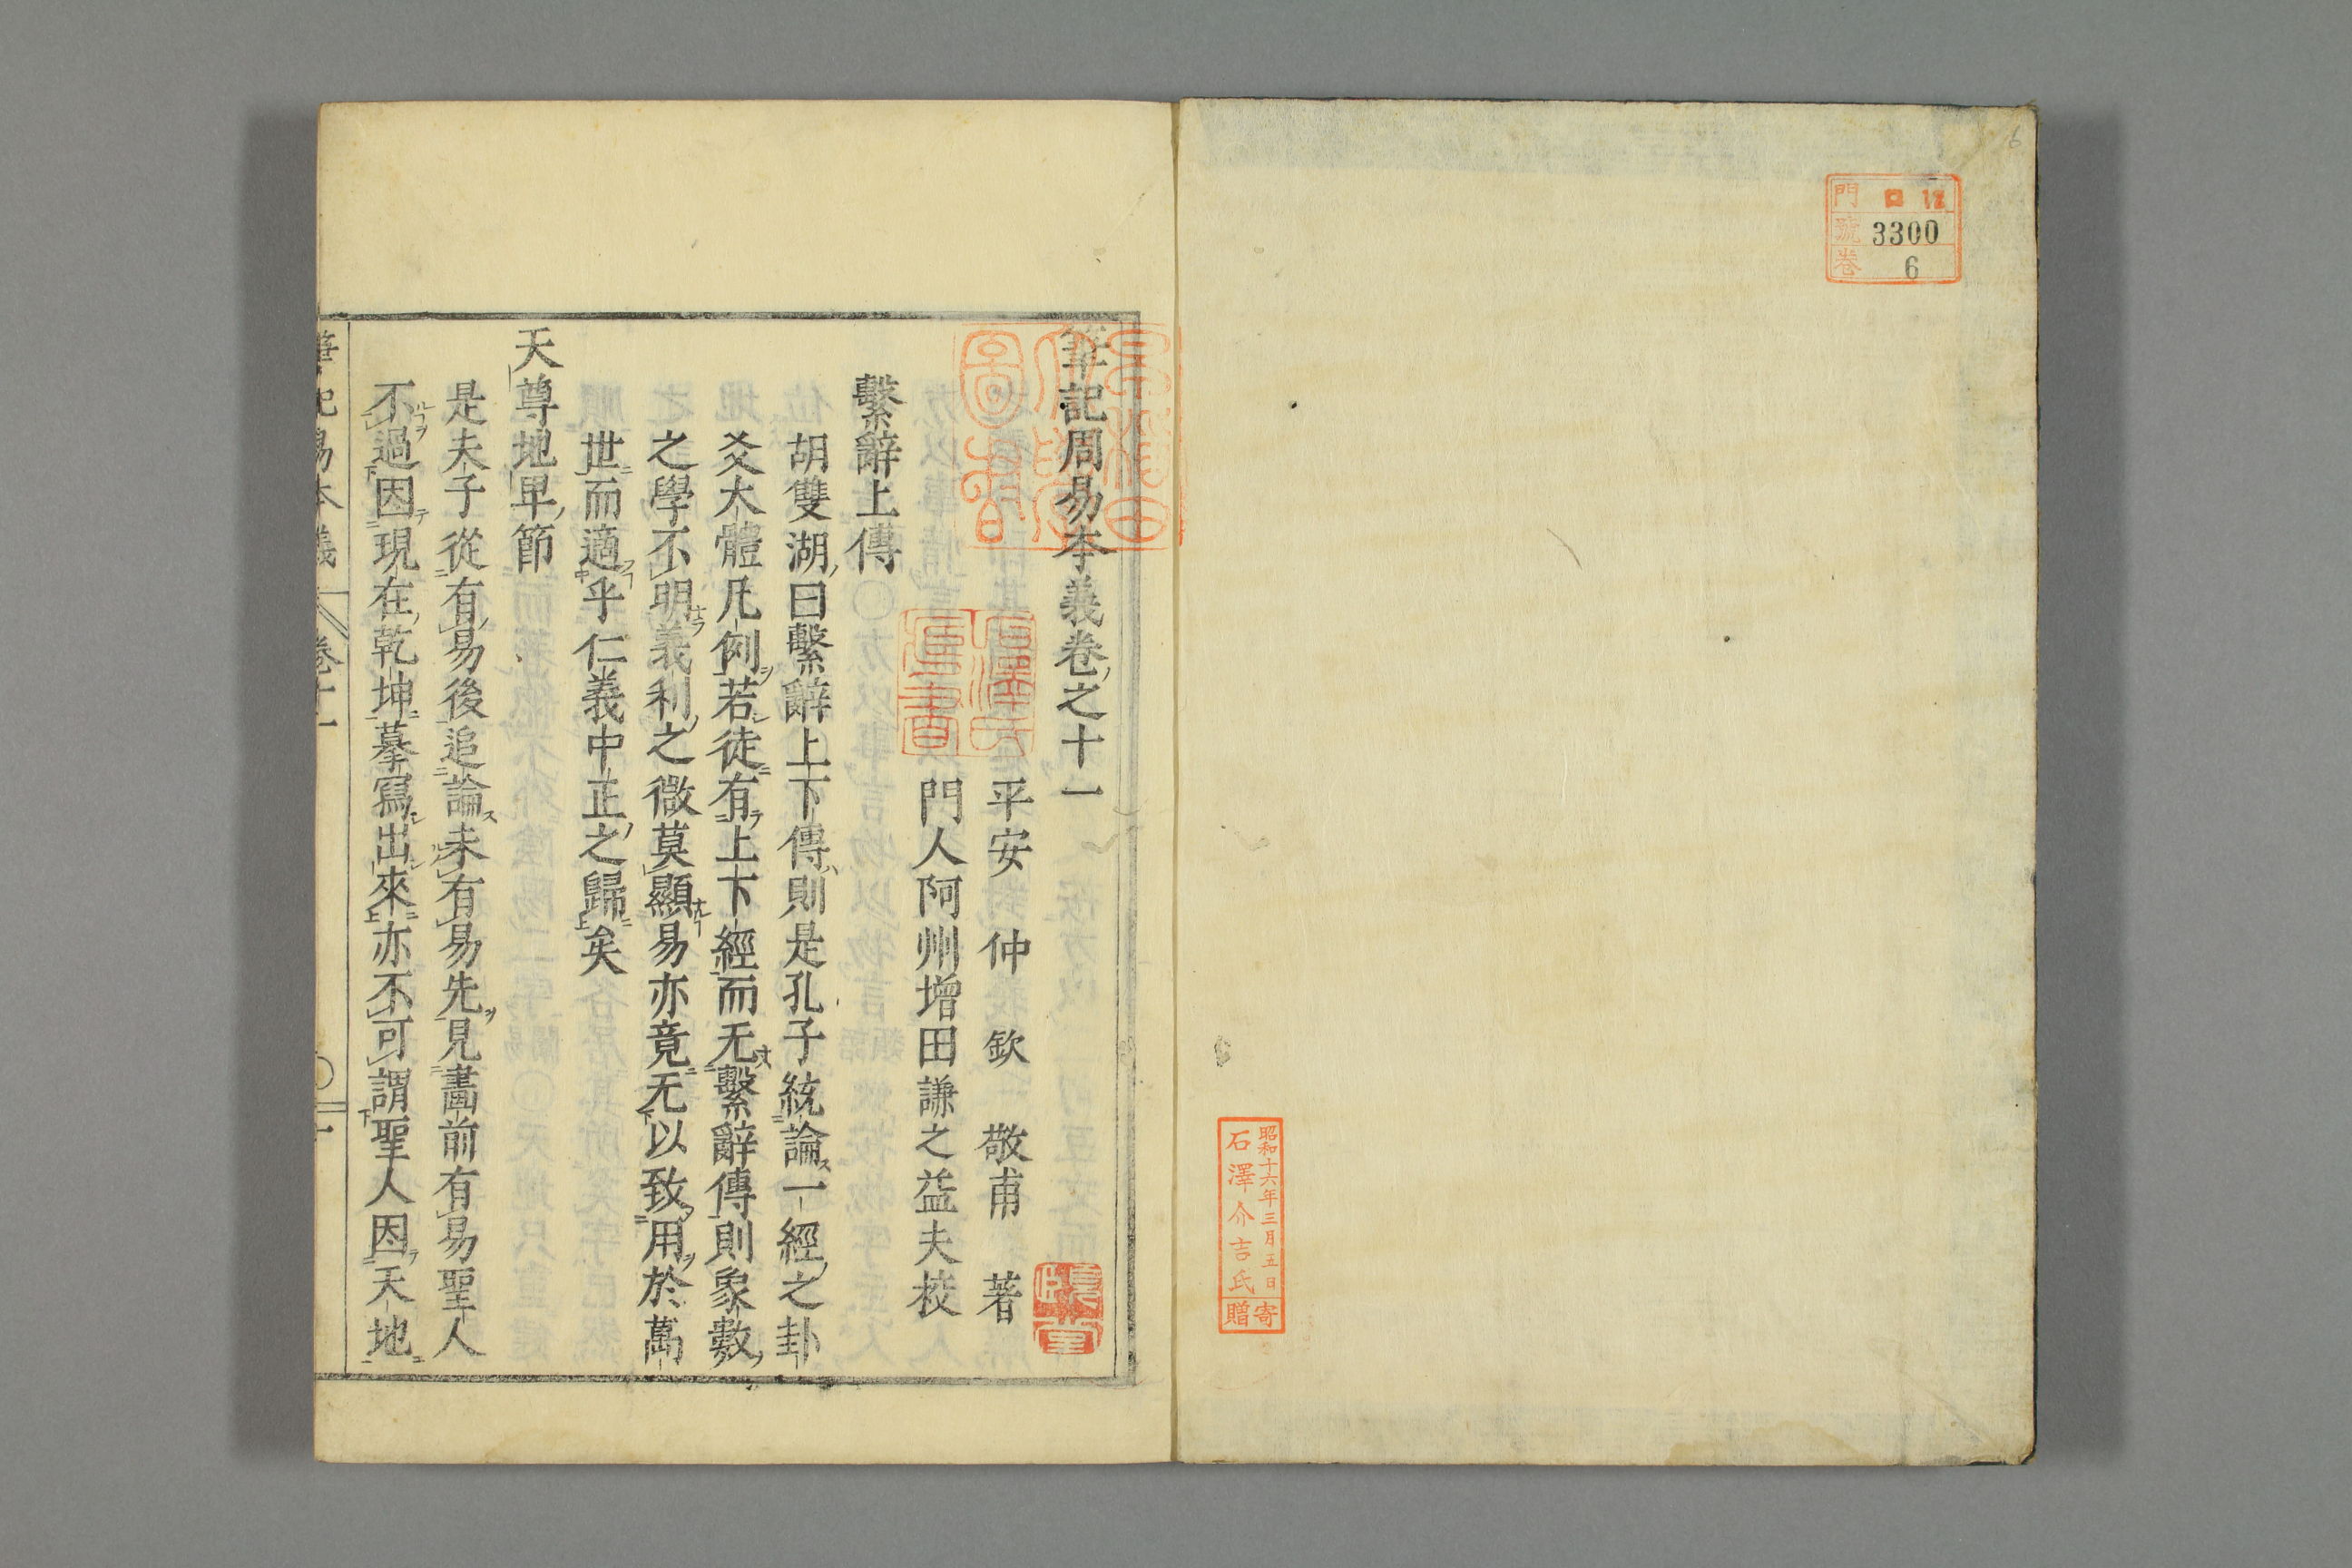 6
門 ロ 12
號 3300
卷 6
昭和十六年三月五日
石澤介吉氏
寄贈
筆記周易本義卷之十一
平安 仲 欽 敬甫 著
門人阿州增田謙之益夫校
繫辭上傳
胡雙湖曰繫辭上下傳則是孔子統論一經之卦
爻大體凡例若徒有上下經而无繫辭傳則象數
之學不明義利之微莫顯易亦竟无以致用於萬
世而適乎仁義中正之歸矣
天尊地卑節
是夫子從有易後追論未有易先見畫前有易聖人
不過因現在乾坤摹寫出來亦不可謂聖人因天地
筆記易本義 卷十一 一
早稻田大學圖書